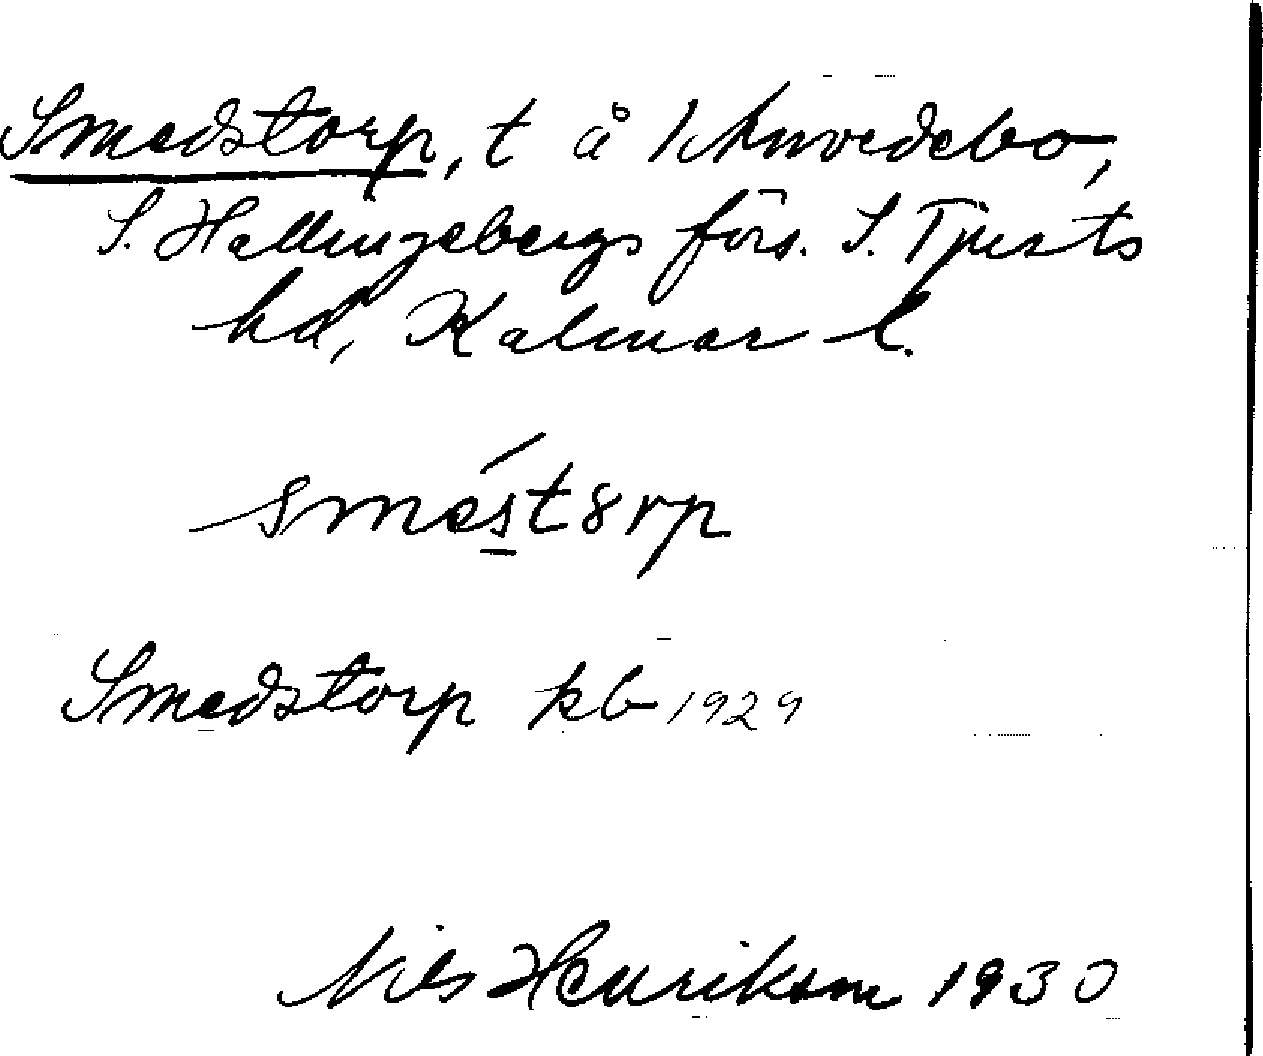 Smedstorp, t å Khvvedebo,
S. Hallingebergs förs. S. Tjusts
hd, Kalmar l.
sméstorp
Smedstorp kb 1929
Nils Henrikson 1930